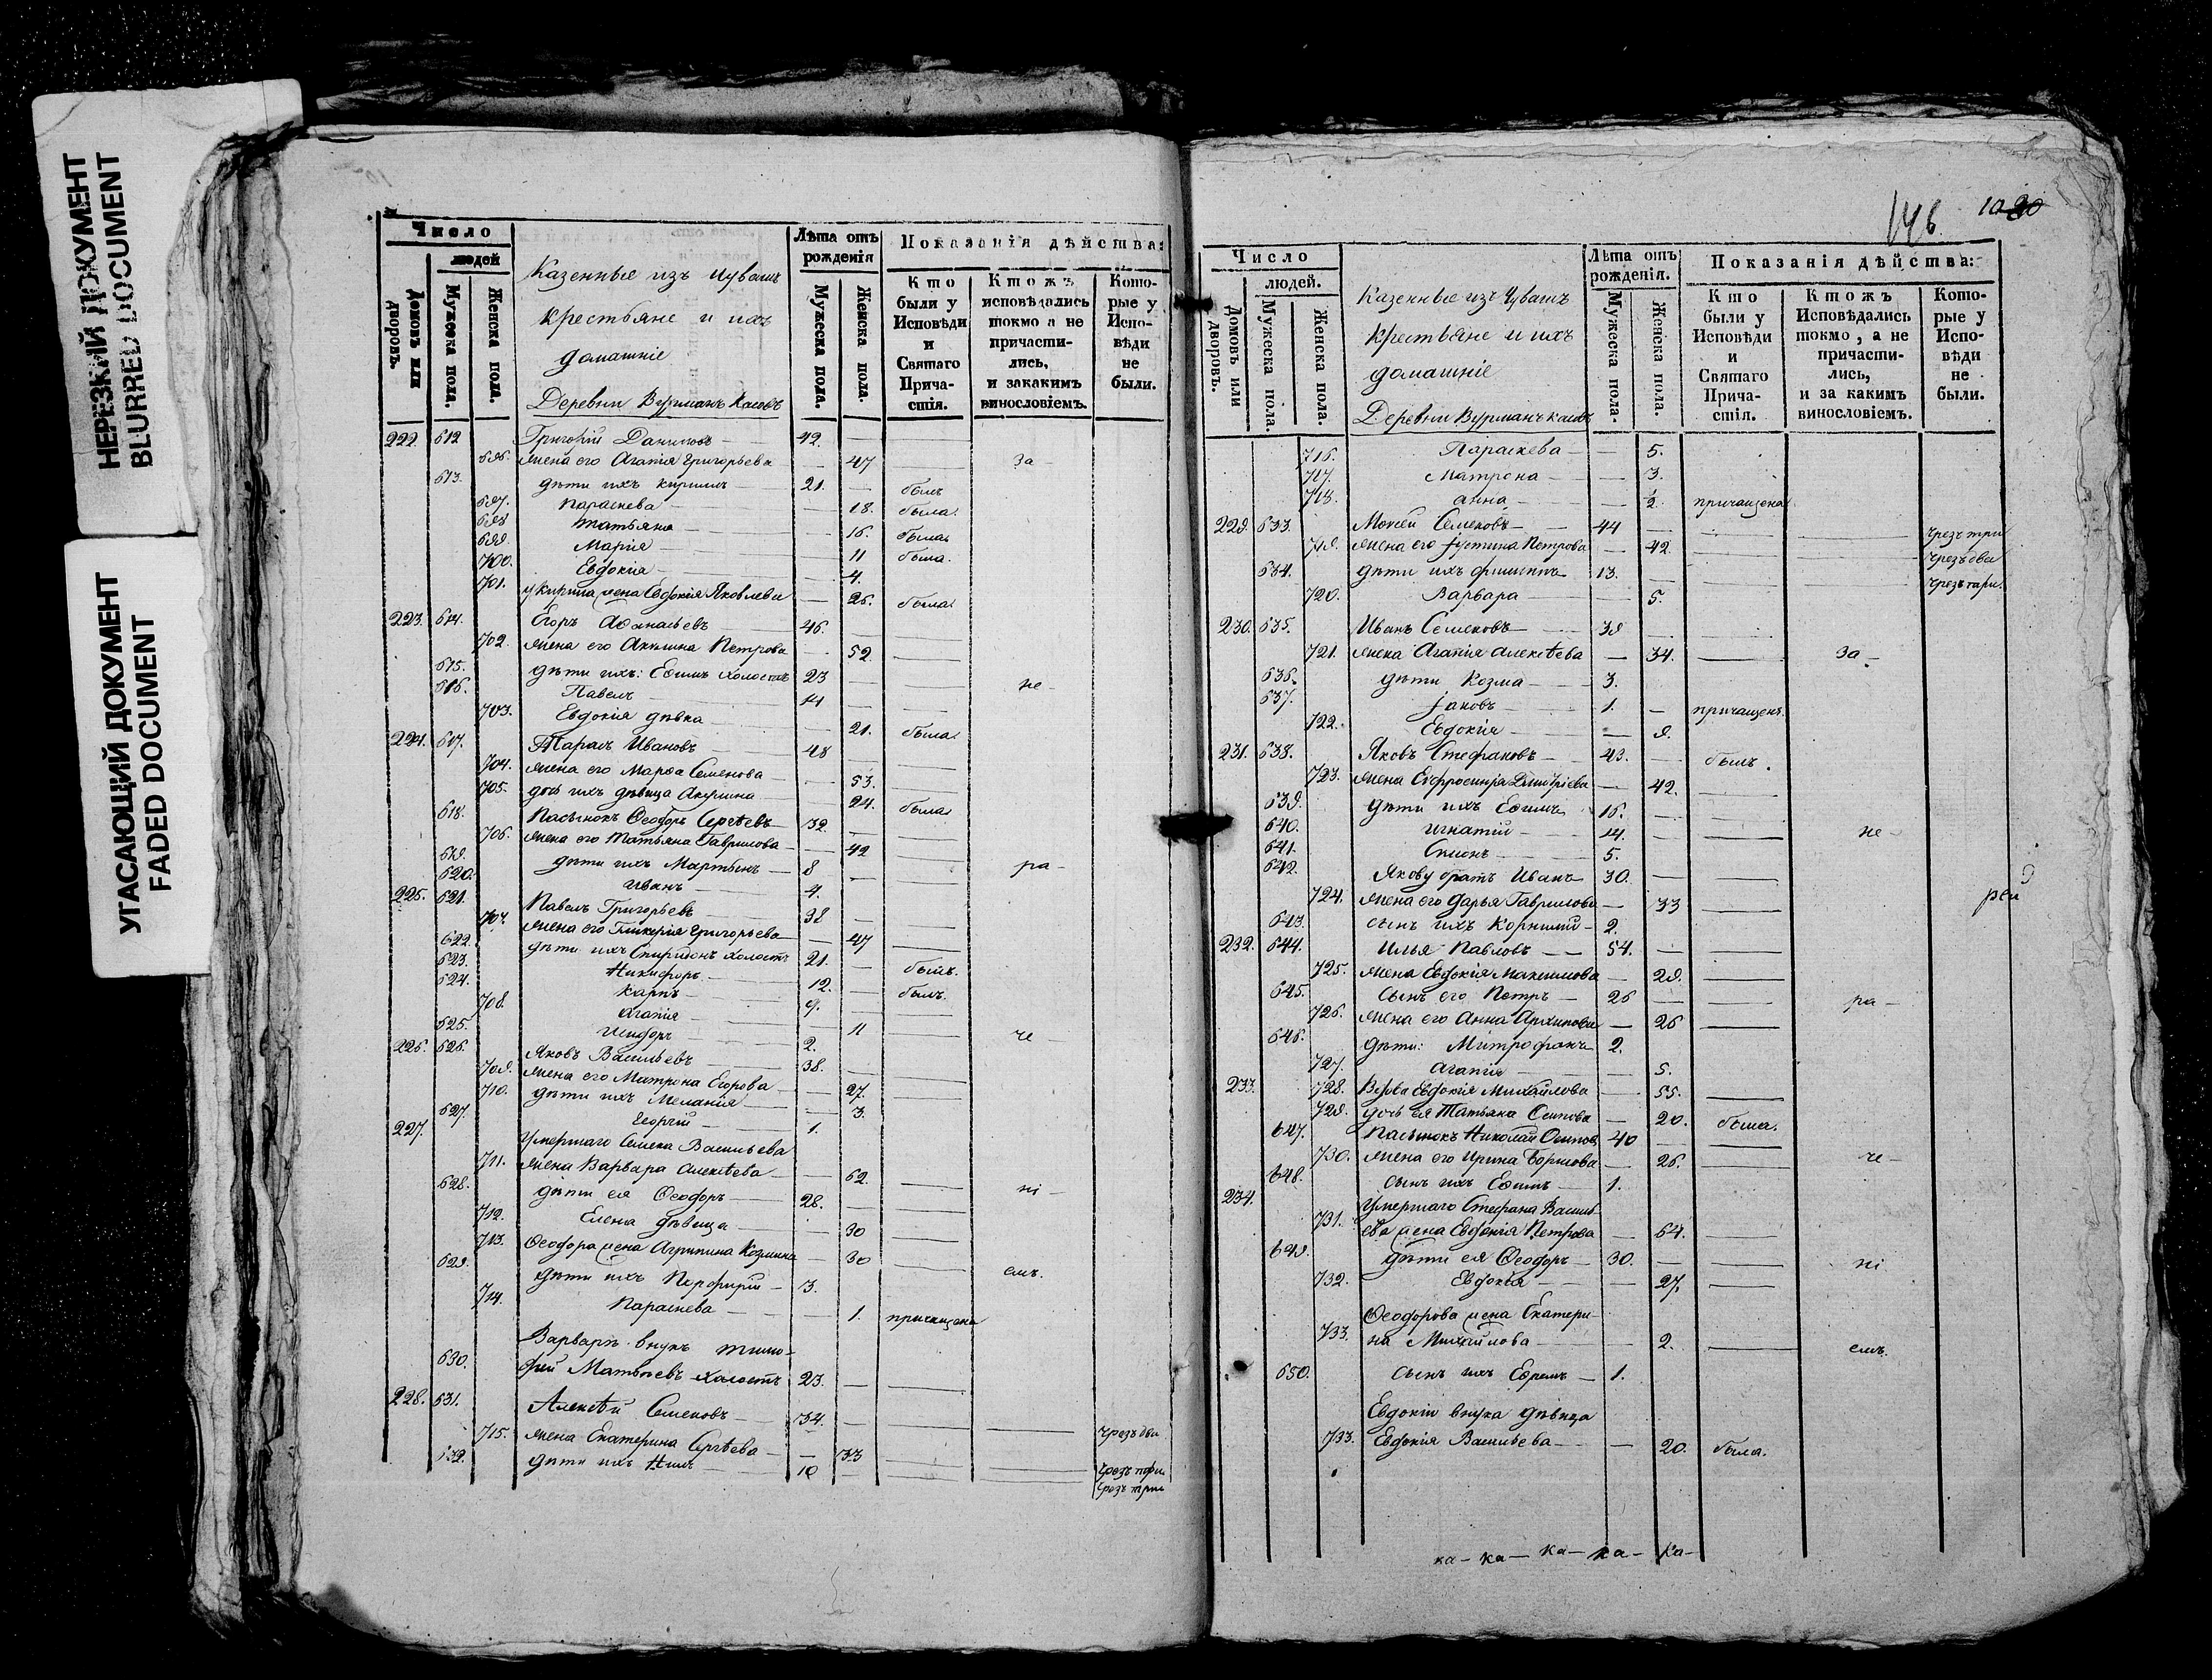 НЕРЕЗКИЙ ДОКУМЕНТ
BLURRED DOCUMENT
УГАСАЮЩИЙ ДОКУМЕНТ
FADED DOCUMENT
Число
людей
Домовъ или дворовъ.
Мужеска пола.
Женска пола.
Казенные изъ Чувашъ
крестьяне и ихъ
домашніе
Деревни Вурманъ Касовъ
Лѣта отъ рожденія
Мужеска пола.
Женска пола.
Показанія дѣйства:
Кто были у Исповѣди и Святаго Прича-стія.
Ктожъ исповѣдались токмо а не причасти-лись, и закакимъ винословіемъ.
Кото-рые у Испо-вѣди не были.
222. 612 Григорій Даниловъ 42.
696. жена его Агапія Григорьева 47 за
613. дѣти ихъ Кирилъ 21. былъ
697. Параскева 18. была
698 Татьяна 16. была
699. Марія 11 была
700. Евдокія 4.
701. у Кирила жена Евдокія Яковлева 26. была
223. 614. Егоръ Афанасьевъ 46.
702. жена его Акилина Петрова 52.
615. дѣти ихъ: Ефимъ холостъ 23 не
616. Павелъ 14
703. Евдокія дѣвка 21. была
224. 617. Тарасъ Ивановъ 48
704. жена его Марфа Семенова 53.
705. дочь ихъ дѣвица Акулина 24. была
618. Пасынокъ Ѳеодоръ Сергѣевъ 32.
706. жена его Татьяна Гаврилова 42
619. дѣти ихъ Мартынъ 8 ра
620. Иванъ 4.
225. 621. Павелъ Григорьевъ 38
707. жена его Гликерія Григорьева 47
622. дѣти ихъ Спиридонъ холостъ 21.
623. Никифоръ 12. былъ.
624. Карпъ 9. былъ.
708. Агапія 11
625. Исидоръ 2. че
226. 626. Яковъ Васильевъ 38.
709. жена его Матрона Егорова 27.
710. дѣти ихъ Меланія 3.
627. Георгій 1.
227. Умершаго Семена Васильева
711. жена Варвара Алексѣева 62.
628. дѣти ея Ѳеодоръ 28. ні
712. Елена дѣвица 30
713. Ѳеодора жена Агрипина Козмина 30
629. дѣти ихъ Порфирій 3. емъ.
714. Параскева 1. причащена
Варвары внукъ Тимо-
630. фей Матвѣевъ холостъ 23.
228. 631. Алексѣй Семеновъ 34. чрезъ два
715. жена Екатерина Сергѣева 33
632. дѣти ихъ Нилъ 10 чрезъ три
чрезъ три
146. 1020
Число
людей.
Домовъ или дворовъ.
Мужеска пола.
Женска пола.
Казенные изъ Чувашъ
крестьяне и ихъ
домашніе
Деревни Вурманъ касовъ
Лѣта отъ рожденія.
Мужеска пола.
Женска пола.
Показанія дѣйства:
Кто были у Исповѣди и Святаго Прича-стія.
Ктожъ Исповѣдались токмо, а не причасти-лись, и за какимъ винословіемъ.
Кото-рые у Испо-вѣди не были.
716. Параскева 5.
717. Матрона 3.
718. Анна ½ причащена
229. 633. Моисей Семеновъ 44 чрезъ три
719. жена его Іустина Петрова 42. чрезъ два
634. дѣти ихъ Филиппъ 13. чрезъ три.
720. Варвара 5.
230. 635. Иванъ Семеновъ 39
721. жена Агапія Алексѣева 34. за
636. дѣти Козма 3.
637. Іаковъ 1. причащенъ
722. Евдокія 9.
231. 638. Яковъ Стефановъ 43. былъ.
723. жена Евфросинія Димитріева 42.
639. дѣти ихъ Ефимъ 16.
640. Игнатій 14. не
641. Симонъ 5.
642. Якову братъ Иванъ 30.
724. жена его Дарья Гаврилова 33 рей
643. сынъ ихъ Корнилий 2.
232. 644. Илья Павловъ 54.
725. жена Евдокія Максимова 29.
645. сынъ его Петръ 26 ра
726. жена его Анна Архипова 26
646. дѣти: Митрофанъ 2.
727. Агапія 5.
233. 728. Вдова Евдокія Михайлова 55.
729. дочь ея Татьяна Осипова 20. была.
647. Пасынокъ Николай Осиповъ 40
730. жена его Ирина Борисова 26. че
648. сынъ ихъ Ефимъ 1.
234. Умершаго Стефана Василь-
731. ева жена Евдокія Петрова 64.
649. дѣти ея Ѳеодоръ 30. ні
732. Евдокія 27.
Ѳеодорова жена Екатери-
733. на Михайлова 2. емъ.
650. сынъ ихъ Ефремъ 1.
Евдокіи внука дѣвица
733. Евдокія Васильева 20. была.
ка - ка - ка - ка - ка -